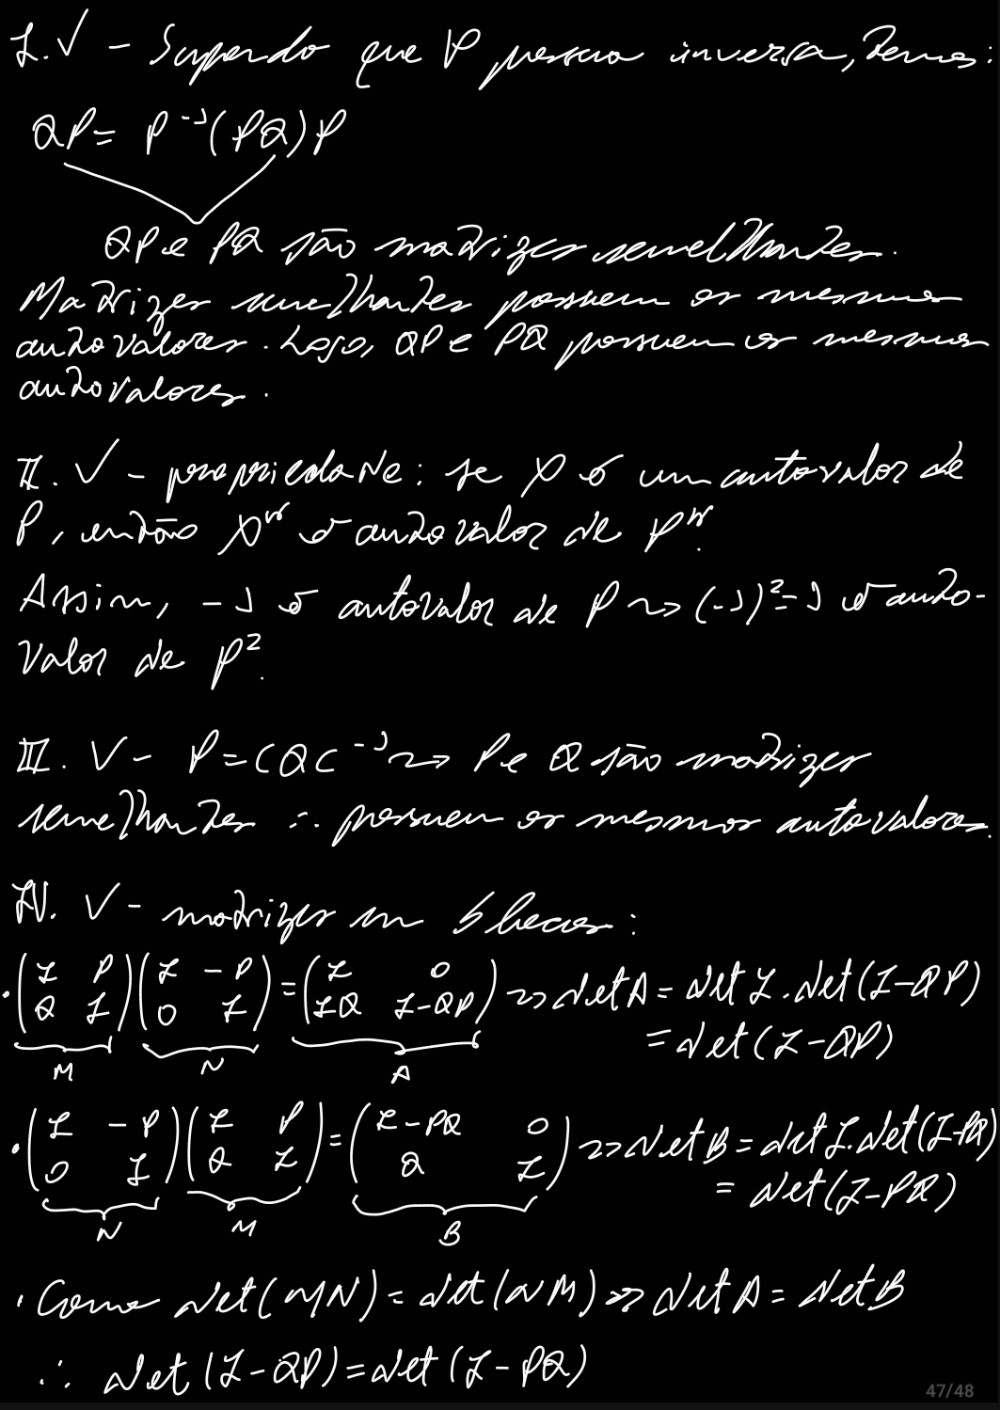 I. V - Supondo que P possua inversa, temos:
QP = P⁻¹(PQ)P
QP e PQ são matrizes semelhantes.
Matrizes semelhantes possuem os mesmos
autovalores. Logo, QP e PQ possuem os mesmos
autovalores.
II. V - propriedade: se λ é um autovalor de
P, então λⁿ é autovalor de Pⁿ.
Assim, -1 é autovalor de P ⇝ (-1)² = 1 é auto-
valor de P².
III. V - P = CQC⁻¹ ⇝ P e Q são matrizes
semelhantes ∴ possuem os mesmos autovalores.
IV. V - matrizes em blocos:
• (I P; Q I) (I -P; 0 I) = (I 0; IQ I-QP) ⇝ det A = det I . det (I-QP)
= det (I-QP)
M N A
• (I -P; 0 I) (I P; Q I) = (I-PQ 0; Q I) ⇝ det B = det I . det (I-PQ)
= det (I-PQ)
N M B
• Como det (MN) = det (NM) ⇝ det A = det B
∴ det (I-QP) = det (I-PQ)
47/48